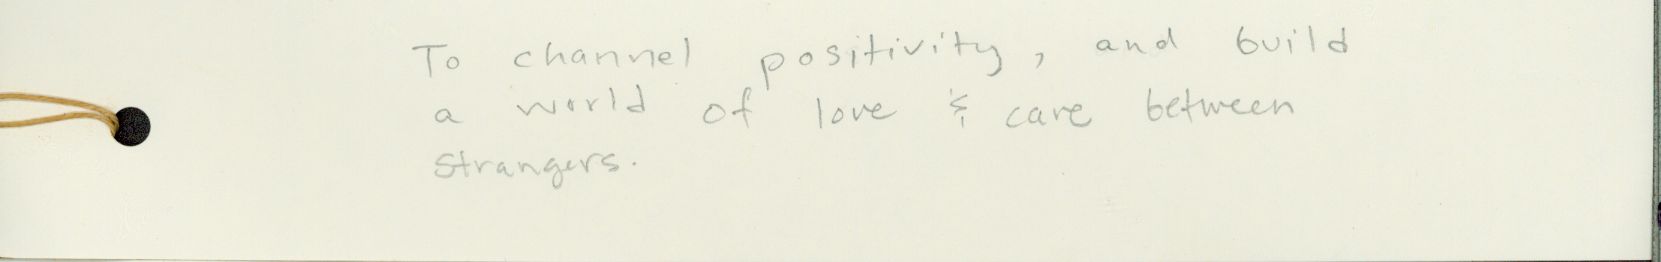 To channel positivity, and build
a world of love & care between
strangers.